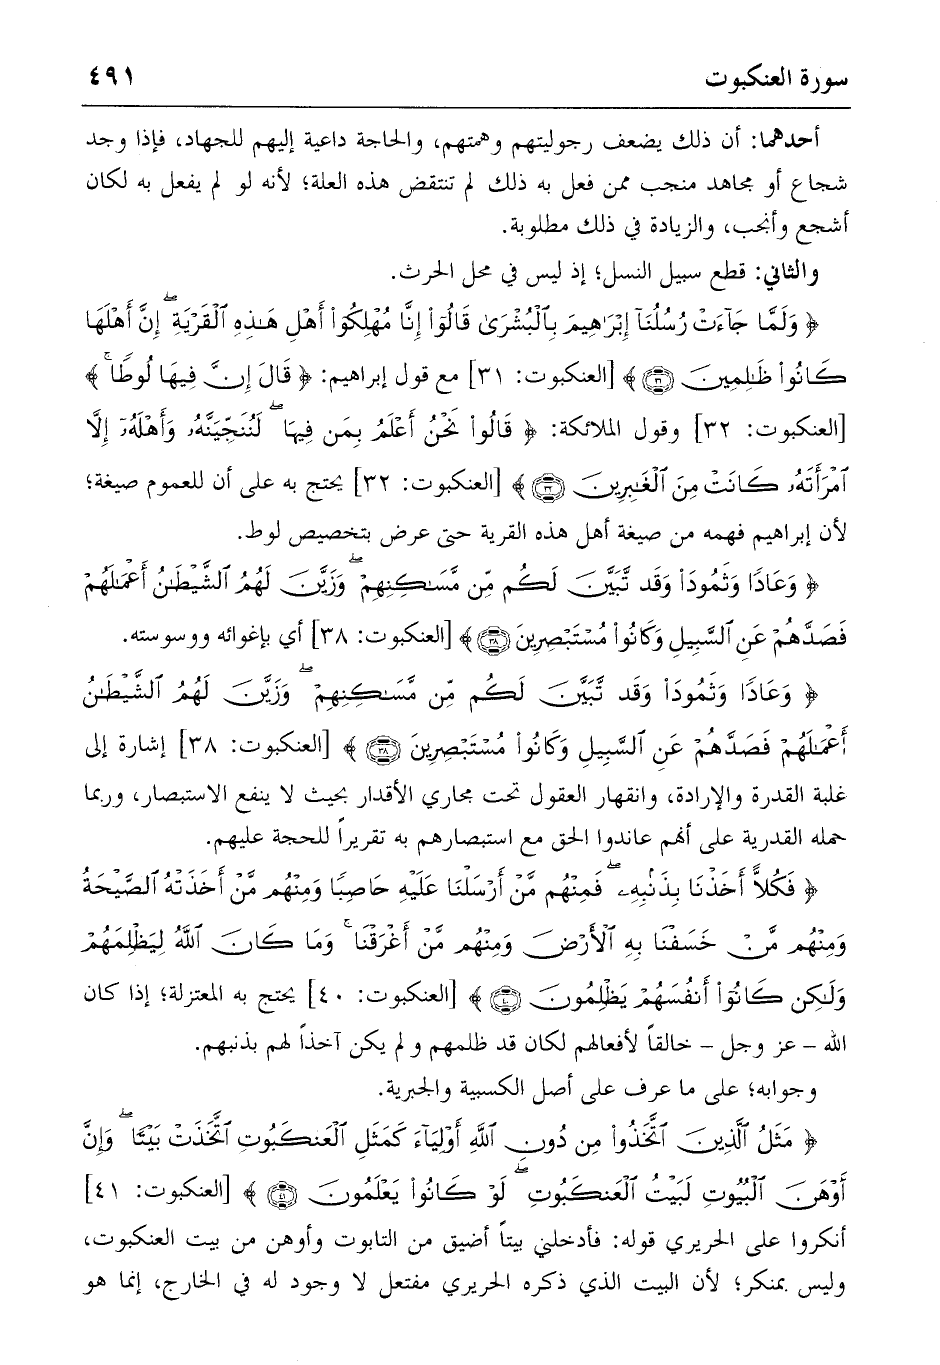 سورة العنكبوت ٤٩١
أحدهما: أن ذلك يضعف رجوليتهم وهمتهم، والحاجة داعية إليهم للجهاد، فإذا وجد
شجاع أو مجاهد منجب ممن فعل به ذلك لم تنتقض هذه العلة؛ لأنه لو لم يفعل به لكان
أشجع وأنجب، والزيادة في ذلك مطلوبة.
والثاني: قطع سبيل النسل؛ إذ ليس في محل الحرث.
﴿ وَلَمَّا جَآءَتْ رُسُلُنَآ إِبْرَٰهِيمَ بِٱلْبُشْرَىٰ قَالُوٓا۟ إِنَّا مُهْلِكُوٓا۟ أَهْلِ هَـٰذِهِ ٱلْقَرْيَةِ ۖ إِنَّ أَهْلَهَا
كَانُوا۟ ظَـٰلِمِينَ ٣١ ﴾ [العنكبوت: ٣١] مع قول إبراهيم: ﴿ قَالَ إِنَّ فِيهَا لُوطًا ۚ ﴾
[العنكبوت: ٣٢] وقول الملائكة: ﴿ قَالُوا۟ نَحْنُ أَعْلَمُ بِمَن فِيهَا ۖ لَنُنَجِّيَنَّهُۥ وَأَهْلَهُۥٓ إِلَّا
ٱمْرَأَتَهُۥ كَانَتْ مِنَ ٱلْغَـٰبِرِينَ ٣٢ ﴾ [العنكبوت: ٣٢] يحتج به على أن للعموم صيغة؛
لأن إبراهيم فهمه من صيغة أهل هذه القرية حتى عرض بتخصيص لوط.
﴿ وَعَادًا وَثَمُودَا۟ وَقَد تَّبَيَّنَ لَكُم مِّن مَّسَـٰكِنِهِمْ ۖ وَزَيَّنَ لَهُمُ ٱلشَّيْطَـٰنُ أَعْمَـٰلَهُمْ
فَصَدَّهُمْ عَنِ ٱلسَّبِيلِ وَكَانُوا۟ مُسْتَبْصِرِينَ ٣٨ ﴾ [العنكبوت: ٣٨] أي بإغوائه ووسوسته.
﴿ وَعَادًا وَثَمُودَا۟ وَقَد تَّبَيَّنَ لَكُم مِّن مَّسَـٰكِنِهِمْ ۖ وَزَيَّنَ لَهُمُ ٱلشَّيْطَـٰنُ
أَعْمَـٰلَهُمْ فَصَدَّهُمْ عَنِ ٱلسَّبِيلِ وَكَانُوا۟ مُسْتَبْصِرِينَ ٣٨ ﴾ [العنكبوت: ٣٨] إشارة إلى
غلبة القدرة والإرادة، وانقهار العقول تحت مجاري الأقدار بحيث لا ينفع الاستبصار، وربما
حمله القدرية على أنهم عاندوا الحق مع استبصارهم به تقريراً للحجة عليهم.
﴿ فَكُلًّا أَخَذْنَا بِذَنۢبِهِۦ ۖ فَمِنْهُم مَّنْ أَرْسَلْنَا عَلَيْهِ حَاصِبًا وَمِنْهُم مَّنْ أَخَذَتْهُ ٱلصَّيْحَةُ
وَمِنْهُم مَّنْ خَسَفْنَا بِهِ ٱلْأَرْضَ وَمِنْهُم مَّنْ أَغْرَقْنَا ۚ وَمَا كَانَ ٱللَّهُ لِيَظْلِمَهُمْ
وَلَـٰكِن كَانُوٓا۟ أَنفُسَهُمْ يَظْلِمُونَ ٤٠ ﴾ [العنكبوت: ٤٠] يحتج به المعتزلة؛ إذا كان
الله – عز وجل – خالقاً لأفعالهم لكان قد ظلمهم و لم يكن آخذاً لهم بذنبهم.
وجوابه؛ على ما عرف على أصل الكسبية والجبرية.
﴿ مَثَلُ ٱلَّذِينَ ٱتَّخَذُوا۟ مِن دُونِ ٱللَّهِ أَوْلِيَآءَ كَمَثَلِ ٱلْعَنكَبُوتِ ٱتَّخَذَتْ بَيْتًا ۖ وَإِنَّ
أَوْهَنَ ٱلْبُيُوتِ لَبَيْتُ ٱلْعَنكَبُوتِ ۖ لَوْ كَانُوا۟ يَعْلَمُونَ ٤١ ﴾ [العنكبوت: ٤١]
أنكروا على الحريري قوله: فأدخلني بيتاً أضيق من التابوت وأوهن من بيت العنكبوت،
وليس بمنكر؛ لأن البيت الذي ذكره الحريري مفتعل لا وجود له في الخارج، إنما هو